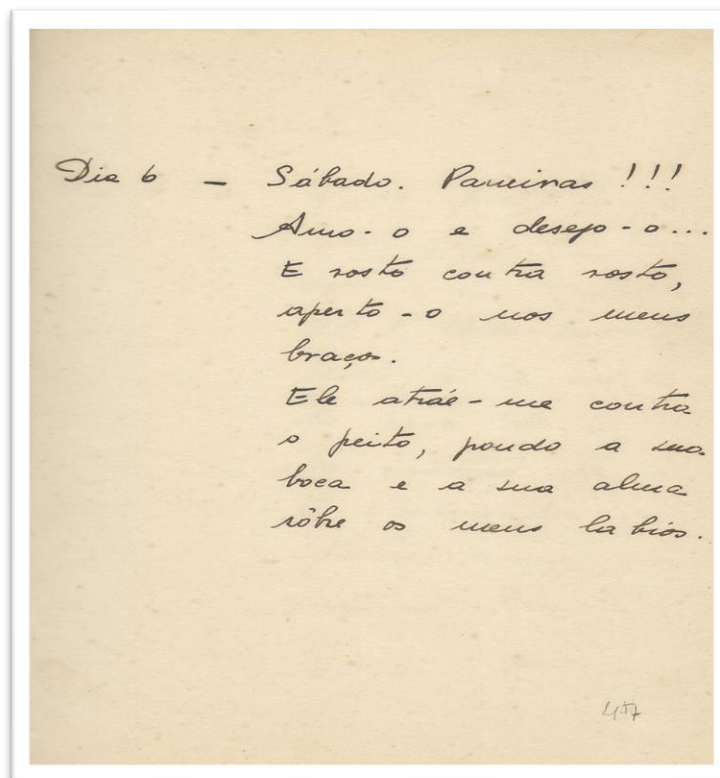 Dia 6 – Sábado. Paineiras !!!
Amo-o e desejo-o...
E rosto contra rosto,
aperto-o nos meus
braços.
Ele atráe-me contra
o peito, pondo a sua
boca e a sua alma
sôbre os meus labios.
457